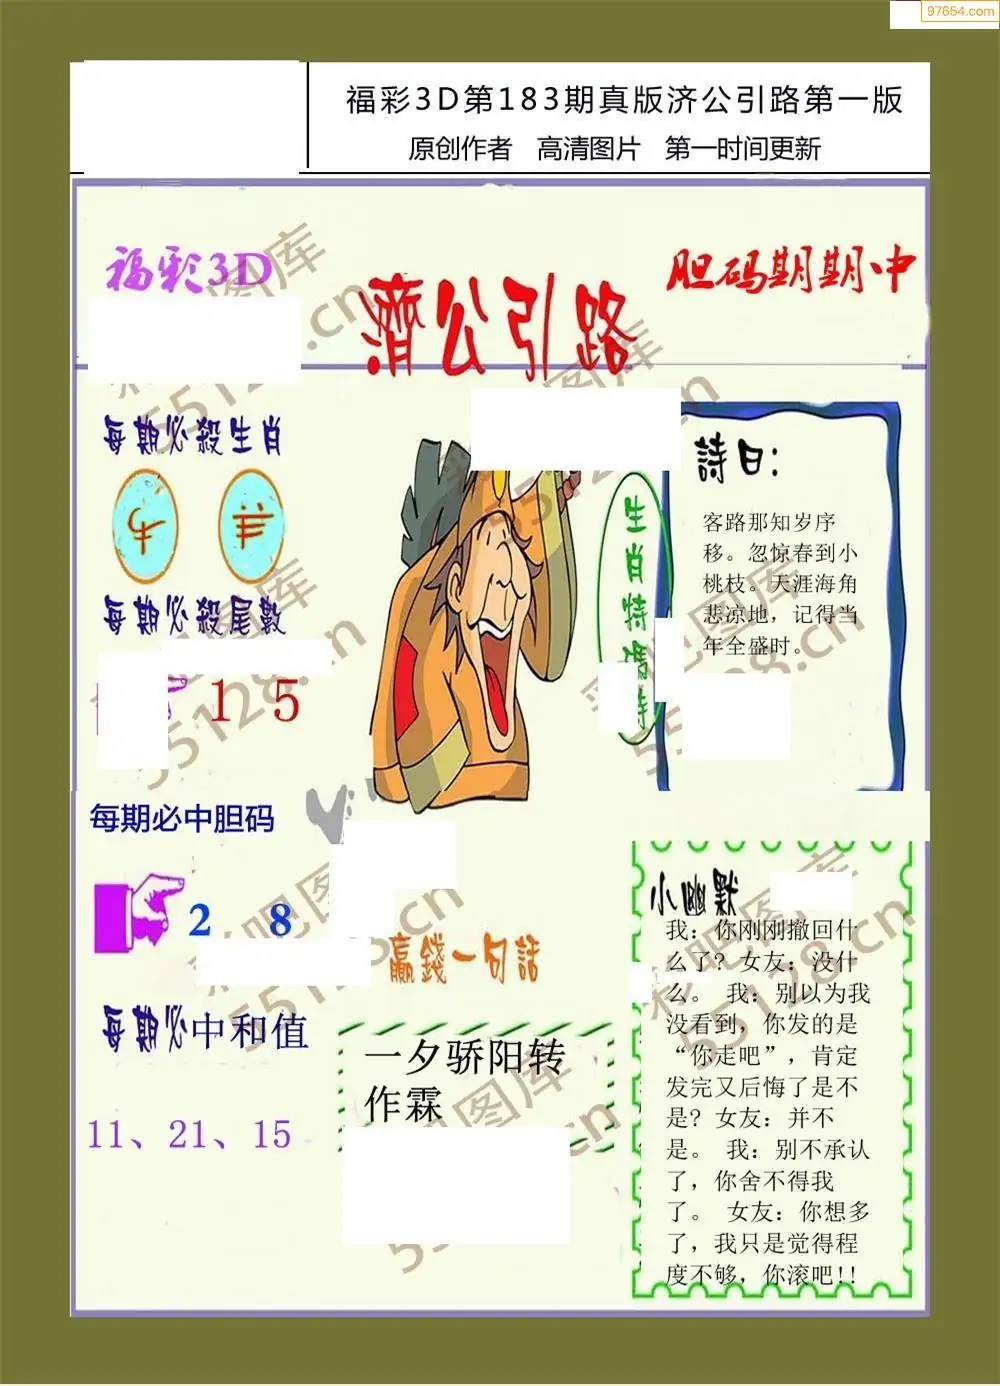 97654.com
福彩3D第183期真版济公引路第一版
原创作者 高清图片 第一时间更新
福彩3D
胆码期期中
濟公引路
每期必殺生肖
牛
羊
每期必殺尾數
1 5
每期必中胆码
2 8
每期必中和值
11、21、15
生肖特碼詩
詩曰:
客路那知岁序
移。忽惊春到小
桃枝。天涯海角
悲凉地，记得当
年全盛时。
赢錢一句話
一夕骄阳转
作霖
小幽默
我：你刚刚撤回什
么了？女友：没什
么。 我：别以为我
没看到，你发的是
“你走吧”，肯定
发完又后悔了是不
是？女友：并不
是。 我：别不承认
了，你舍不得我
了。 女友：你想多
了，我只是觉得程
度不够，你滚吧!!
彩吧图库
55128.cn